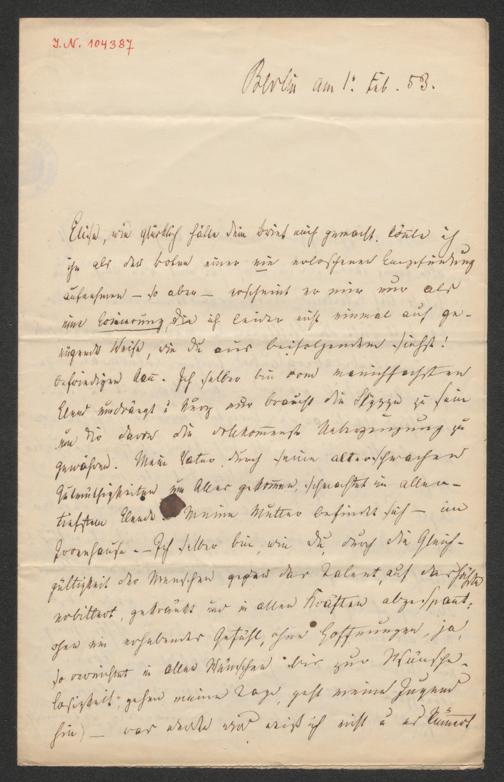 J. N. 104387
Berlin am 1: Feb. 53.
Elise, wie glücklich hätte dein Brief mich gemacht, könnte ich
ihn als den Boten einer nie erloschenen Empfindung
aufnehmen – so aber – erscheint er mir nur als
eine Erinnerung, die ich leider nicht einmal auf ge-
nügende Weise, wie du aus beifolgendem siehst!
befriedigen kann. Ich selber bin vom mannichfachsten
Elend umdrängt u kurz nur braucht die Skizze zu sein
um dir davon die vollkommenste Ueberzeugung zu
gewähren. Mein Vater, durch seine altersschwachen
Gutmüthigkeiten um Alles gekommen, schmachtet im aller-
tiefsten Elende – Meine Mutter befindet sich – im
Irrenhause. – Ich selber bin, wie du, durch die Gleich-
gültigkeit der Menschen gegen das Talent, auf das Höchste
erbittert, gekränkt und in allen Kräften abgespannt;
ohne ein erhebendes Gefühl, ohne Hoffnungen, ja,
so vernichtet in allen Wünschen bis zur Wünsche-
losigkeit, gehen meine Tage, geht meine Jugend
hin) – was werden wird weiß ich nicht u es kümmert